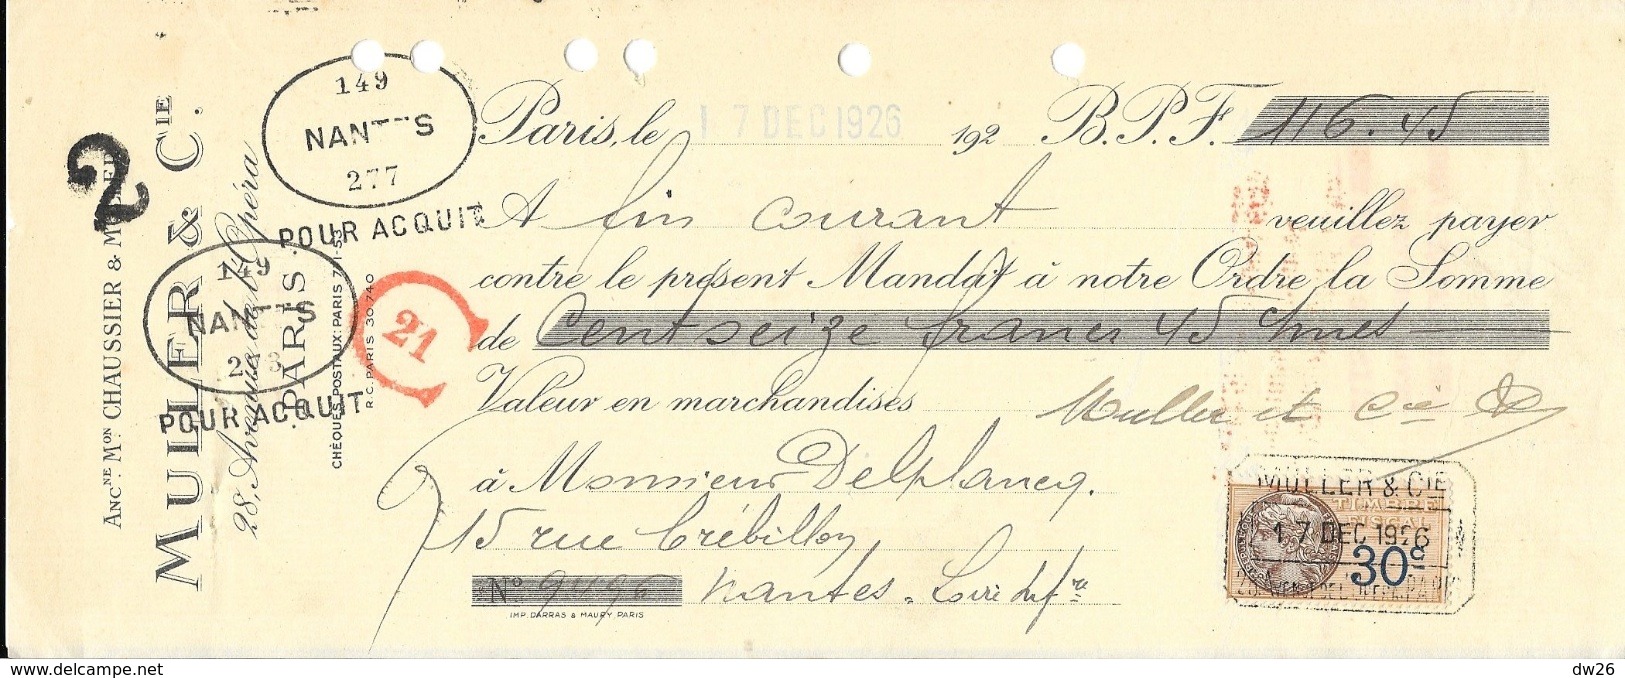 ANC.NE M.ON CHAUSSIER &
MULLER & C.IE
28, Avenue de l'Opéra
PARIS.
CHÈQUES POSTAUX: PARIS
R.C. PARIS 30740
2
149
NANTES
277
POUR ACQUIT
149
NANTES
POUR ACQUIT
21
Paris, le 17 DEC 1926 192 B.P.F. 116.45
A fin courant veuillez payer
contre le présent Mandat à notre Ordre la Somme
de Cent seize francs 45 cmes
Valeur en marchandises
Muller et Cie
à Monsieur Delplancq.
15 rue Crébillon
N° 9496 Nantes - Loire Infre
IMP. DARRAS & MAURY PARIS
MULLER & CIE
TIMBRE
17 DEC 1926
30c
delcampe.net
dw26